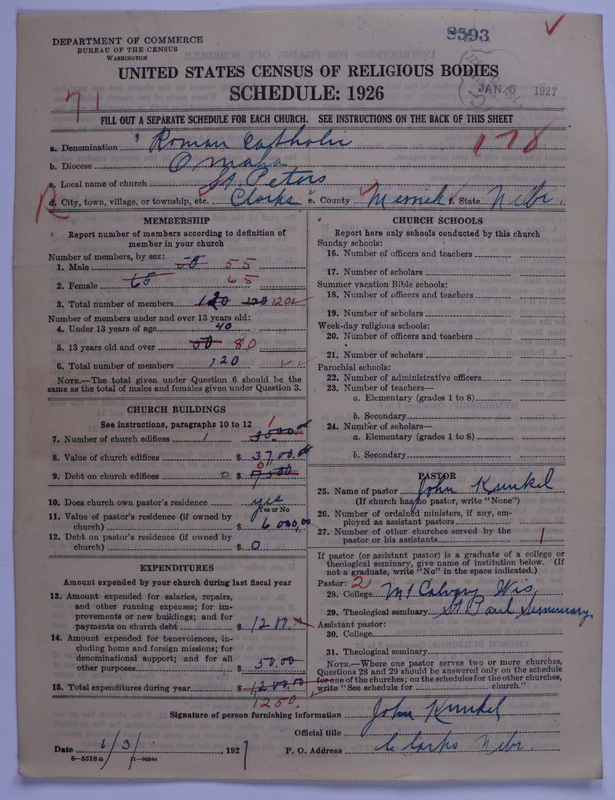 8593
DEPARTMENT OF COMMERCE
BUREAU OF THE CENSUS
WASHINGTON
JAN 5 1927
UNITED STATES CENSUS OF RELIGIOUS BODIES
SCHEDULE: 1926
71
FILL OUT A SEPARATE SCHEDULE FOR EACH CHURCH. SEE INSTRUCTIONS ON THE BACK OF THIS SHEET
178
a. Denomination Roman Catholic
b. Diocese Omaha
c. Local name of church St. Peters
d. City, town, village, or township, etc. Clarks e. County Merrick f. State Nebr.
MEMBERSHIP
Report number of members according to definition of
member in your church
Number of members, by sex:
1. Male 50 55
2. Female 65 65
3. Total number of members 120 120 120
Number of members under and over 13 years old:
4. Under 13 years of age 40
5. 13 years old and over 50 80
6. Total number of members 120
NOTE.—The total given under Question 6 should be
same as the total of males and females given under Question 3.
CHURCH BUILDINGS
See instructions, paragraphs 10 to 12
7. Number of church edifices 1
8. Value of church edifices $ 3700.00
9. Debt on church edifices 0 $
10. Does church own pastor's residence yes
Yes or No
11. Value of pastor's residence (if owned by
church) $ 6000.00
12. Debt on pastor's residence (if owned by
church) $ 0
EXPENDITURES
Amount expended by your church during last fiscal year
13. Amount expended for salaries, repairs,
and other running expenses; for im-
provements or new buildings; and for
payments on church debt $ 1200.
14. Amount expended for benevolences, in-
cluding home and foreign missions; for
denominational support; and for all
other purposes $ 50.00
15. Total expenditures during year $ 1200.00
1250.
CHURCH SCHOOLS
Report here only schools conducted by this church
Sunday schools:
16. Number of officers and teachers
17. Number of scholars
Summer vacation Bible schools:
18. Number of officers and teachers
19. Number of scholars
Week-day religious schools:
20. Number of officers and teachers
21. Number of scholars
Parochial schools:
22. Number of administrative officers
23. Number of teachers—
a. Elementary (grades 1 to 8)
b. Secondary
24. Number of scholars—
a. Elementary (grades 1 to 8)
b. Secondary
PASTOR
25. Name of pastor John Kunkel
(If church has no pastor, write "None")
26. Number of ordained ministers, if any, em-
ployed as assistant pastors
27. Number of other churches served by the
pastor or his assistants 1
If pastor (or assistant pastor) is a graduate of a college or
theological seminary, give name of institution below. (If
not a graduate, write "No" in the space indicated.)
Pastor: 2
28. College Mt Calvary Wis,
29. Theological seminary St Paul Seminary
Assistant pastor:
30. College
31. Theological seminary
NOTE.—Where one pastor serves two or more churches,
Questions 28 and 29 should be answered only on the schedule
for one of the churches; on the schedules for the other churches,
write "See schedule for church."
Signature of person furnishing information John Kunkel
Official title
Date 1/3/, 1927 P. O. Address Clarks Nebr.
8—5318a 11—90544